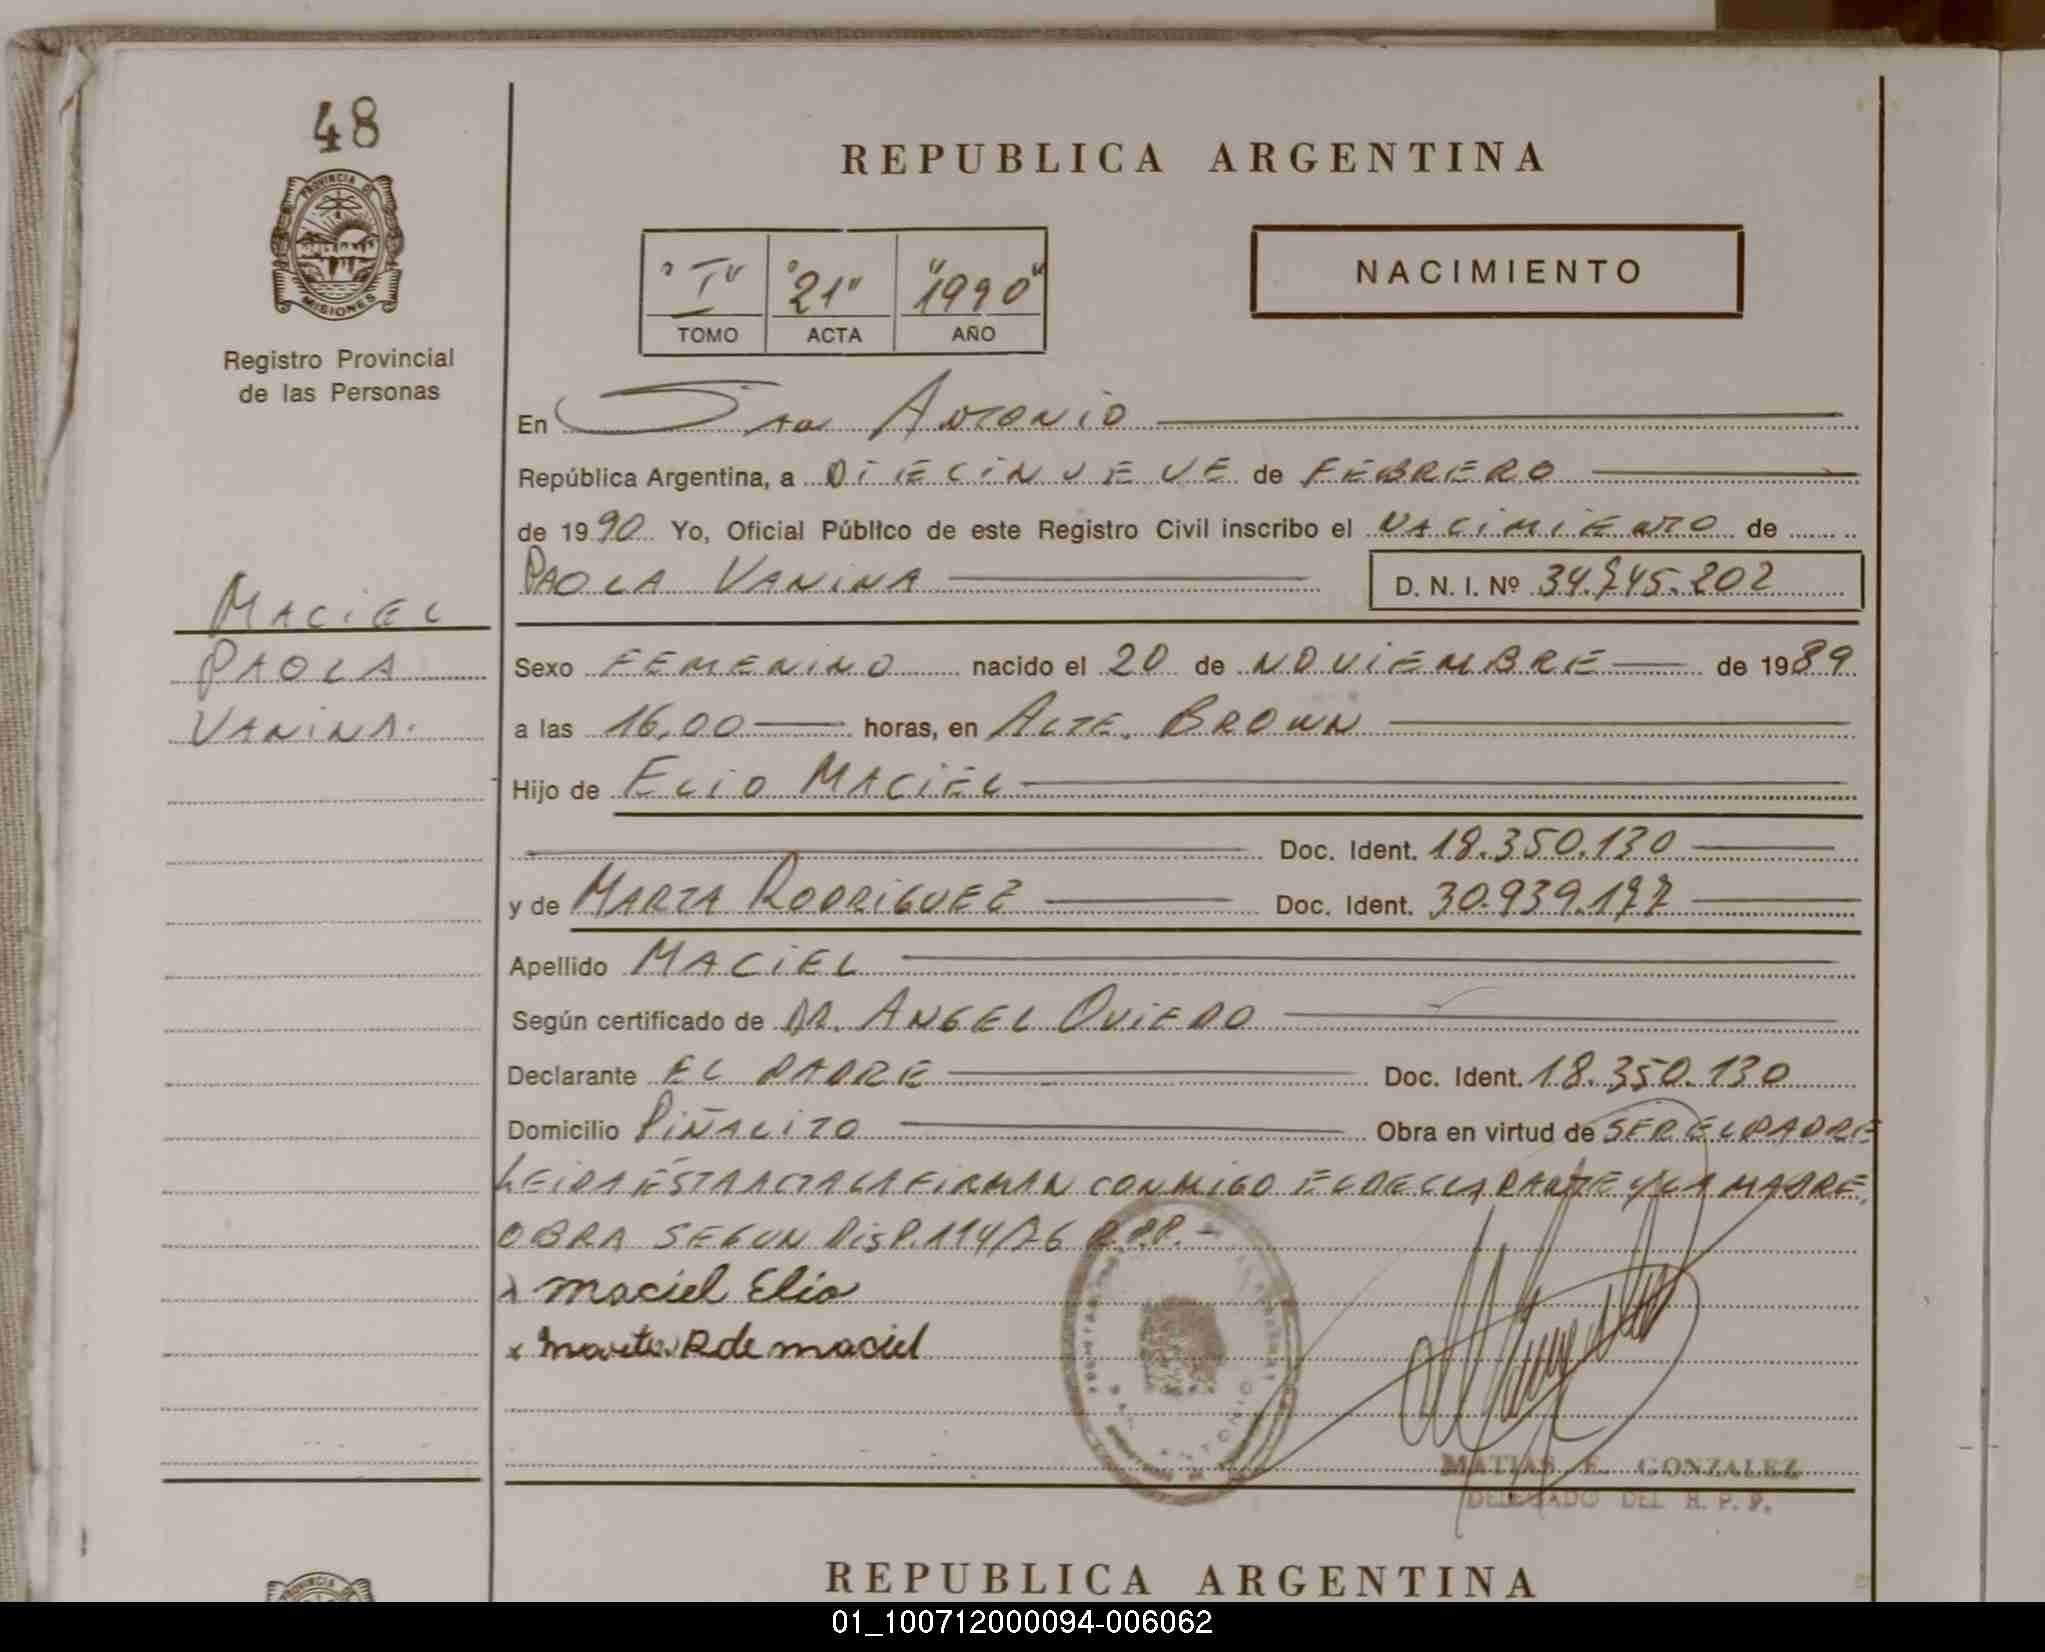 48
REPUBLICA ARGENTINA
PROVINCIA DE
MISIONES
Registro Provincial
de las Personas
"I" "21" "1990"
TOMO ACTA AÑO
NACIMIENTO
En San Antonio
República Argentina, a DIECINUEVE de FEBRERO
de 1990 Yo, Oficial Público de este Registro Civil inscribo el NACIMIENTO de
PAOLA VANINA D. N. I. Nº 34.745.202
MACIEL
PAOLA
VANINA.
Sexo FEMENINO nacido el 20 de NOVIEMBRE de 1989
a las 16,00 horas, en ALTE. BROWN
Hijo de ELIO MACIEL
Doc. Ident. 18.350.130
y de MARTA RODRIGUEZ Doc. Ident. 30.939.177
Apellido MACIEL
Según certificado de DR. ANGEL OVIEDO
Declarante EL PADRE Doc. Ident. 18.350.130
Domicilio PIÑALITO Obra en virtud de SER EL PADRE
LEIDA ESTA ACTA LA FIRMAN CONMIGO EL DECLARANTE Y LA MADRE.
OBRA SEGUN DISP. 114/76 R.P.P.-
x Maciel Elio
x Marta R de maciel
MATIAS E. GONZALEZ
DELEGADO DEL R. P. P.
REPUBLICA ARGENTINA
PROVINCIA DE
01_100712000094-006062